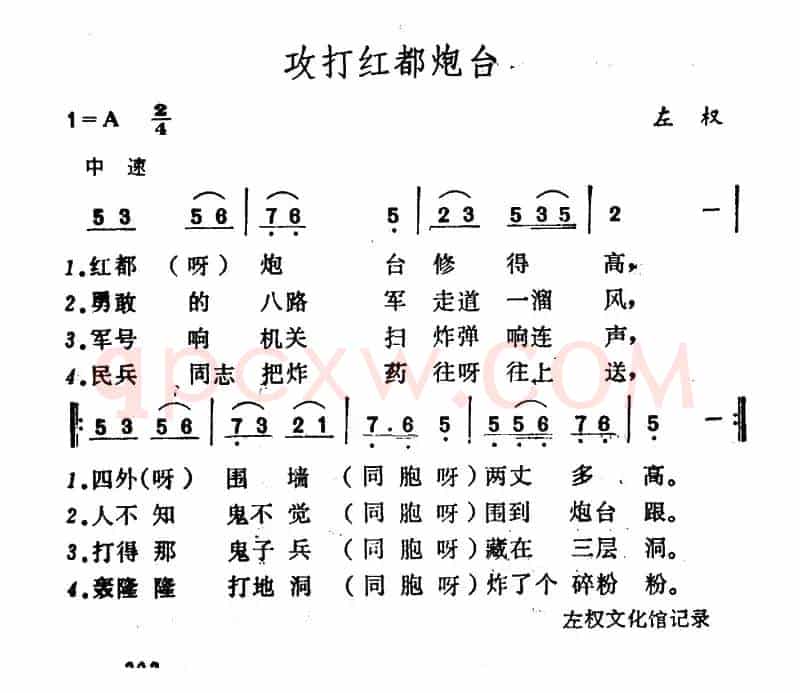 攻打红都炮台
1=A 2/4 左 权
中 速
5 3 5 6 | 7 6 5 | 2 3 5 3 5 | 2 — |
1.红都 (呀) 炮 台 修 得 高,
2.勇敢 的 八路 军 走道 一溜 风,
3.军号 响 机关 扫 炸弹 响连 声,
4.民兵 同志 把炸 药 往呀 往上 送,
qpcxw.com
‖: 5 3 5 6 | 7 3 2 1 | 7. 6 5 | 5 5 6 7 6 | 5 — :‖
1.四外(呀) 围 墙 (同 胞 呀) 两丈 多 高。
2.人不 知 鬼不 觉 (同 胞 呀) 围到 炮台 跟。
3.打得 那 鬼子 兵 (同 胞 呀) 藏在 三层 洞。
4.轰隆 隆 打地 洞 (同 胞 呀) 炸了个 碎粉 粉。
左权文化馆记录